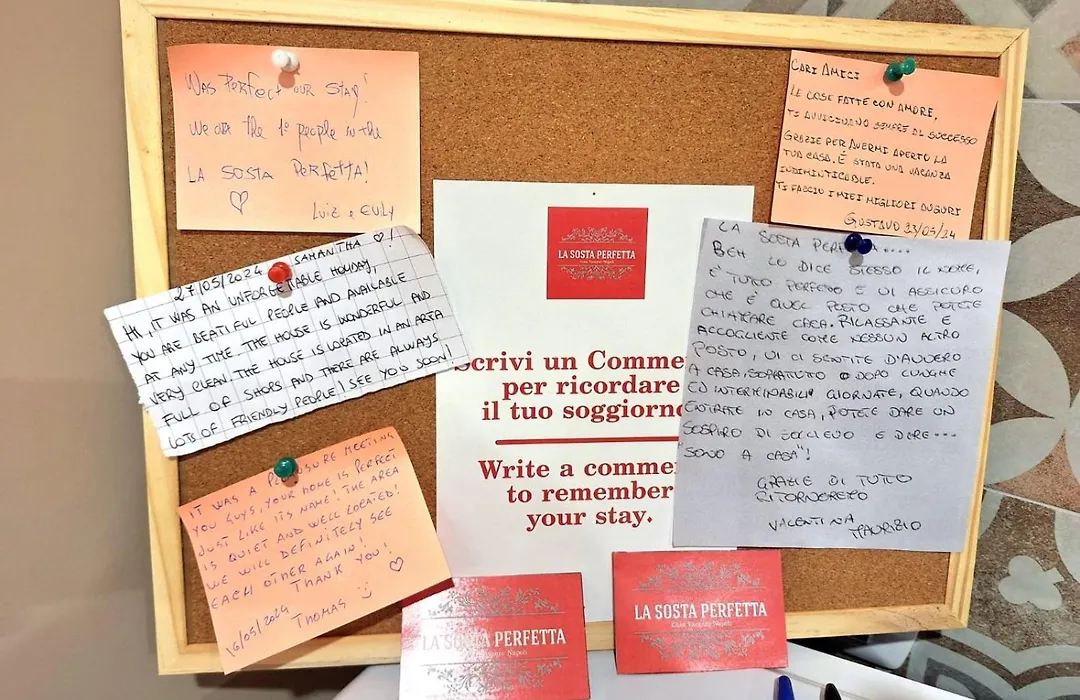 Was Perfect our stay!
We are the 1º people in the
LA SOSTA PERFETTA!
Luiz e Evily
CARI AMICI
LE COSE FATTE CON AMORE,
TI AVVICINANO SEMPRE AL SUCCESSO
GRAZIE PER AVERMI APERTO LA
TUA CASA. È STATA UNA VACANZA
INDIMINTICABILE.
TI FACCIO I MIEI MIGLIORI AUGURI
GUSTAVO 23/05/24
27/05/2024 SAMANTHA
HI, IT WAS AN UNFORGETTABLE HOLIDAY,
YOU ARE BEATIFUL PEOPLE AND AVAILABLE
AT ANY TIME THE HOUSE IS WONDERFUL AND
VERY CLEAN. THE HOUSE IS LOCATED IN AN AREA
FULL OF SHOPS AND THERE ARE ALWAYS
LOTS OF FRIENDLY PEOPLE! SEE YOU SOON!
IT WAS A PLEASURE MEETING
YOU GUYS, YOUR HOME IS PERFECT
JUST LIKE ITS NAME! THE AREA
IS QUIET AND WELL LOCATED!
WE WILL DEFINITELY SEE
EACH OTHER AGAIN!
THANK YOU!
16/05/2024 THOMAS
LA SOSTA PERFETTA
Casa Vacanze Napoli
Scrivi un Comme
per ricordare
il tuo soggiorno
Write a comme
to remember
your stay.
LA SOSTA PERF A....
BEH LO DICE STESSO IL NOME,
E' TUTTO PERFETTO E VI ASSICURO
CHE E' QUEL POSTO CHE POTETE
CHIAMARE CASA. RILASSANTE E
ACCOGLIENTE COME NESSUN ALTRO
POSTO, VI CI SENTITE D'AVVERO
A CASA, SOPRATUTTO DOPO LUNGHE
ED INTERMINABILI GIORNATE, QUANDO
ENTRATE IN CASA, POTETE DARE UN
SOSPIRO DI SOLLIEVO E DIRE...
"SONO A CASA"!
GRAZIE DI TUTTO
RITORNEREMO
VALENTINA
MAURIZIO
LA SOSTA PERFETTA
Napoli
LA SOSTA PERFETTA
Casa Vacanze Napoli